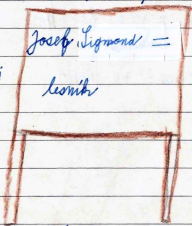 Josef Sigmond =
lesník